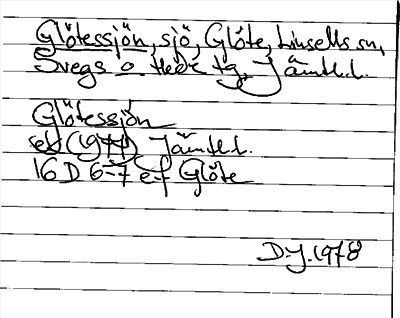 Glötessjön, sjö, Glöte, Linsells sn,
Svegs o. Hede tg, Jämtl.l.
Glötessjön
sek (1971) Jämtl.l.
16 D 6-7 e-f Glöte
D.J. 1978